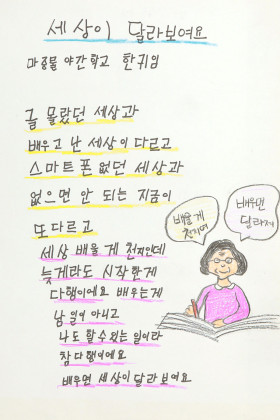 세상이 달라보여요
마중물 야간학교 한귀임
글 몰랐던 세상과
배우고 난 세상이 다르고
스마트폰 없던 세상과
없으면 안 되는 지금이
또 다르고
세상 배울게 천지인데
늦게라도 시작한게
다행이에요 배우는게
남 일이 아니고
나도 할수 있는 일이라
참 다행이에요
배우면 세상이 달라 보여요
배울게
천지여
배우면
달라져